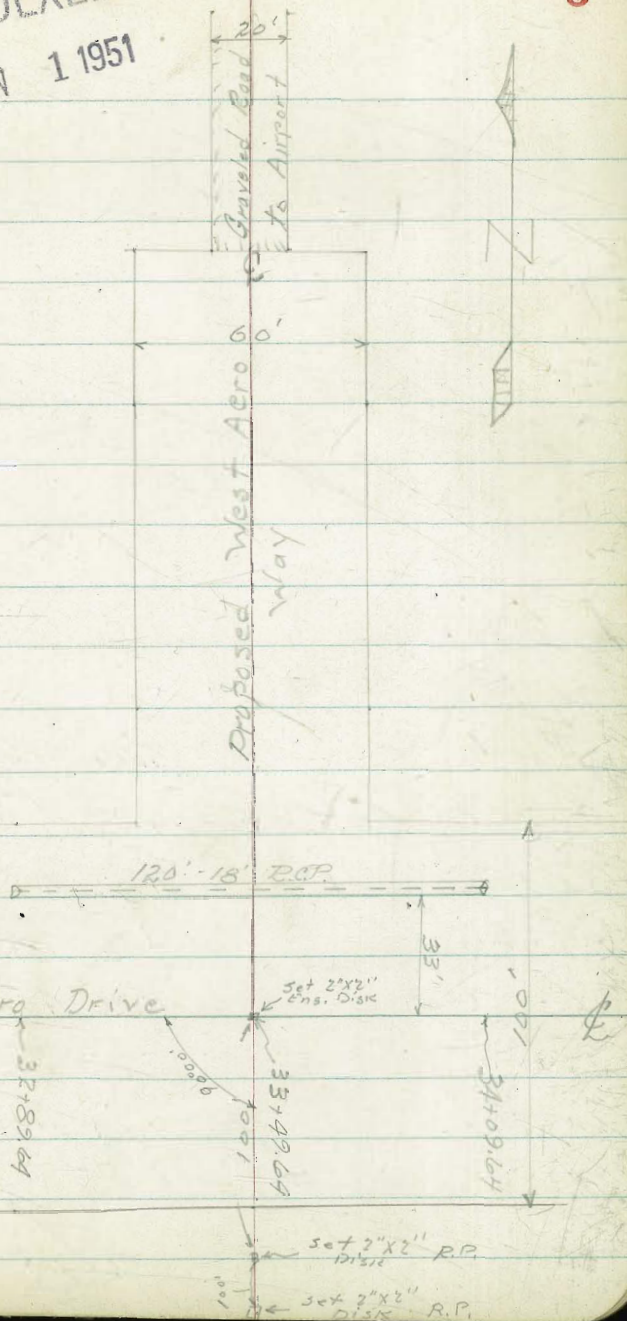 1 1951
20'
Graveled Road
to Airport
℄
N
60'
Proposed West Aero
Way
120'-18" R.C.P.
33'
100'
Set 2"x2"
Eng. Disk
Drive
℄
90°00'
32+89.64
33+49.64
34+09.64
100'
Set 2"x2"
Disk R.P.
100'
Set 2"x2"
Disk R.P.